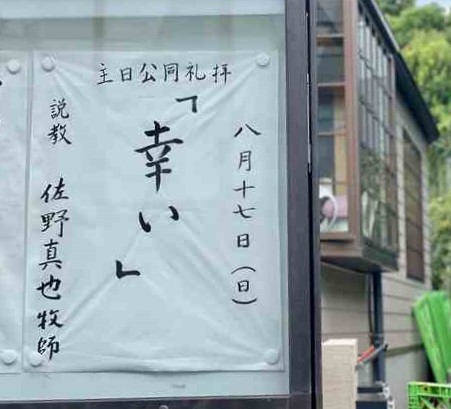 主日公同礼拝
八月十七日(日)
「幸い」
説教 佐野真也牧師